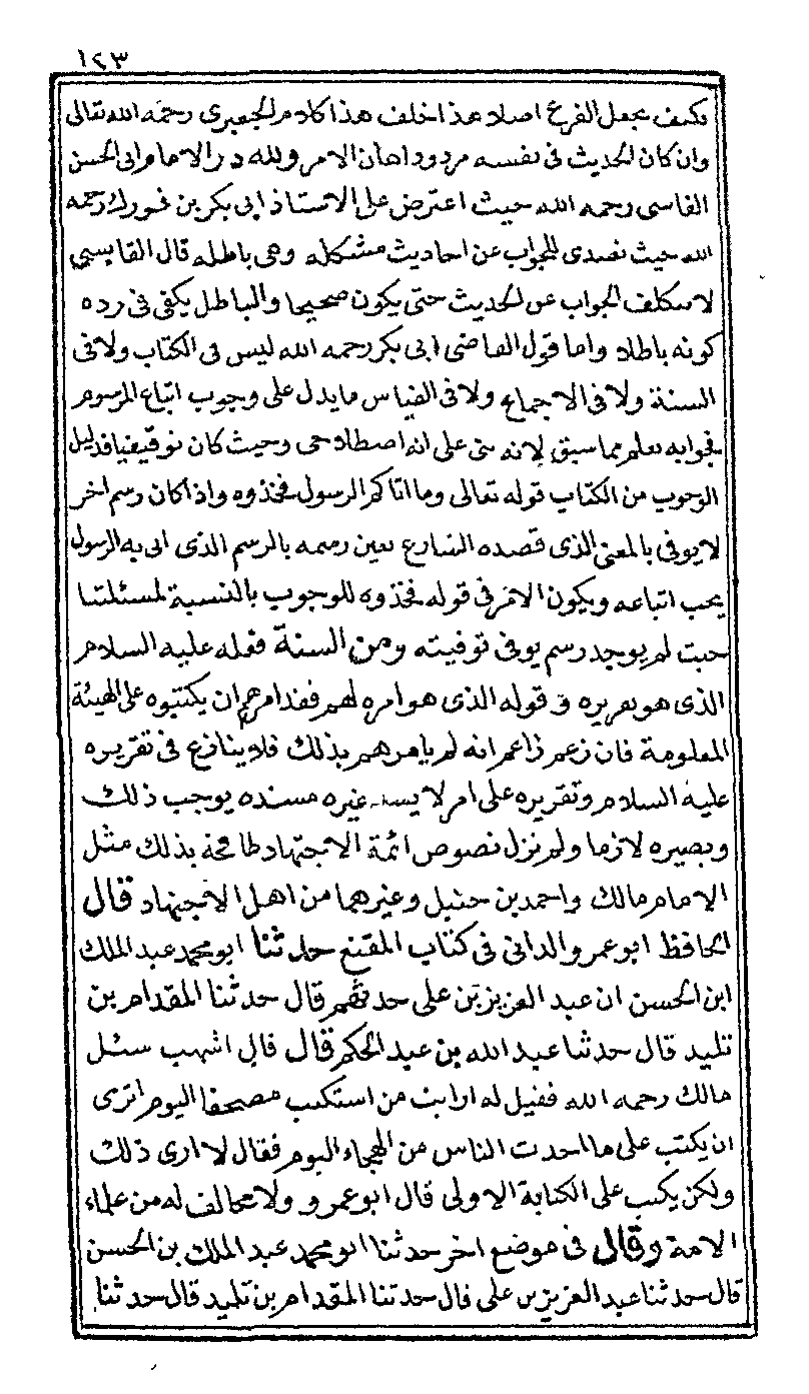 ١٢٣
فكيف يجعل الفرع اصلا هذا خلف هذا كلام الجعبرى رحمه الله تعالى
وان كان الحديث فى نفسه مردودا هان الامر ولله در الامام ابى الحسن
القابسى رحمه الله حيث اعترض على الاستاذ ابى بكر بن فورك رحمه
الله حيث تصدى للجواب عن احاديث مشكله وهى باطله قال القابسى
لا يتكلف الجواب عن الحديث حتى يكون صحيحا والباطل يكفى فى رده
كونه باطلا واما قول القاضى ابى بكر رحمه الله ليس فى الكتاب ولا فى
السنة ولا فى الاجماع ولا فى القياس ما يدل على وجوب اتباع المرسوم
فجوابه يعلم مما سبق لانه بنى على انه اصطلاحى وحيث كان توقيفيا فدليل
الوجوب من الكتاب قوله تعالى وما اتاكم الرسول فخذوه واذا كان رسم اخر
لا يوفى بالمعنى الذى قصده الشارع تعين رسمه بالرسم الذى اتى به الرسول
يجب اتباعه ويكون الامر فى قوله فخذوه للوجوب بالنسبة لمسئلتنا
حيث لم يوجد رسم يوفى توفيته ومن السنة فعله عليه السلام
الذى هو تقريره و قوله الذى هو امره لهم فقد امرهم ان يكتبوه على الهيئة
المعلومة فان زعم زاعم انه لم يامرهم بذلك فلا ينازع فى تقريره
عليه السلام وتقريره على امر لا يسد غيره مسده يوجب ذلك
ويصيره لازما ولم نزل نصوص ائمة الاجتهاد طافحة بذلك مثل
الامام مالك واحمد بن حنبل وغيرهما من اهل الاجتهاد قال
الحافظ ابو عمرو الدانى فى كتاب المقنع حدثنا ابو محمد عبد الملك
ابن الحسن ان عبد العزيز بن على حدثهم قال حدثنا المقدام بن
تليد قال حدثنا عبد الله بن عبد الحكم قال قال اشهب سئل
مالك رحمه الله فقيل له ارايت من استكتب مصحفا اليوم اترى
ان يكتب على ما احدث الناس من الهجاء اليوم فقال لا ارى ذلك
ولكن يكتب على الكتابة الاولى قال ابو عمرو ولا مخالف له من علماء
الامة وقال فى موضع اخر حدثنا ابو محمد عبد الملك بن الحسن
قال حدثنا عبد العزيز بن على قال حدثنا المقدام بن تليد قال حدثنا